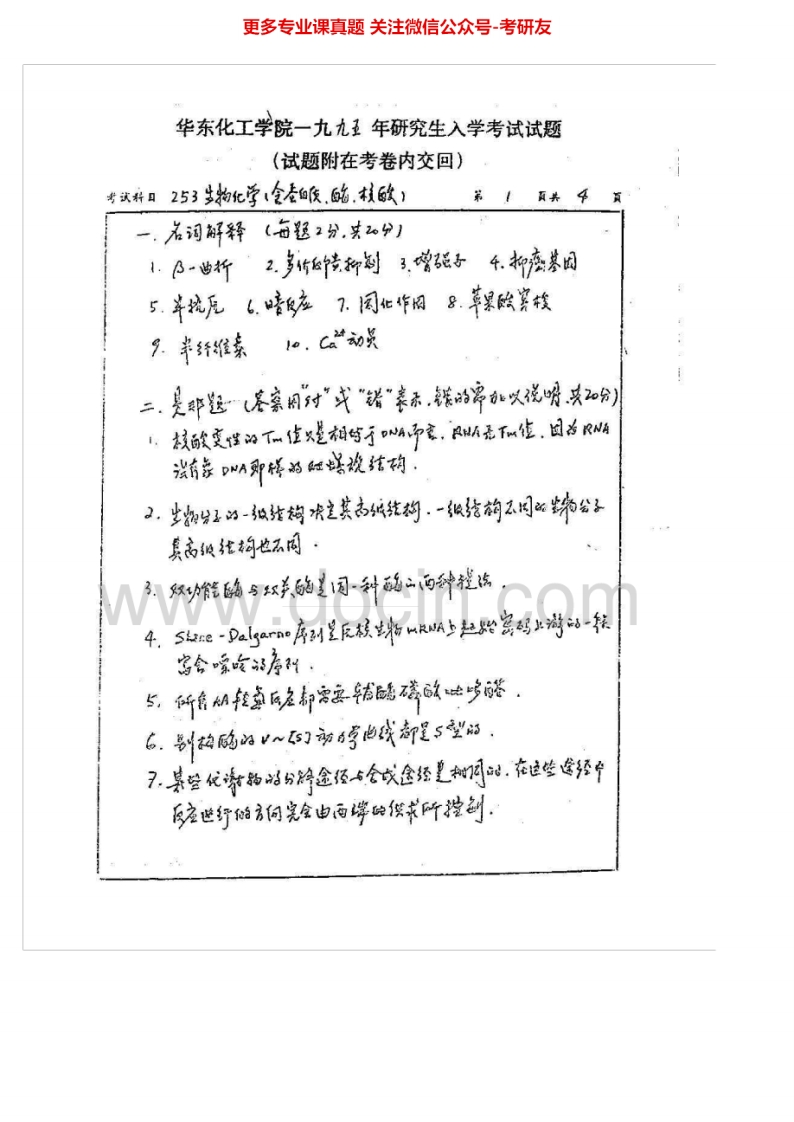 更多专业课真题 关注微信公众号-考研友
华东化工学院一九九五年研究生入学考试试题
(试题附在考卷内交回)
考试科目 253生物化学(含蛋白质、酶、核酸) 第 1 页共 4 页
一. 名词解释 (每题2分.共20分)
1. β-曲折 2. 多价反馈抑制 3. 增强子 4. 抑癌基因
5. 半抗原 6. 暗反应 7. 同化作用 8. 苹果酸穿梭
9. 半纤维素 10. Ca²⁺动员
二. 是非题 (答案用"对"或"错"表示.错的需加以说明.共20分)
1. 核酸变性的Tm值只是相对于DNA而言. RNA无Tm值. 因为RNA
没有象DNA那样的双螺旋结构.
2. 生物分子的一级结构决定其高级结构. 一级结构不同的生物分子
其高级结构也不同.
3. 双功能酶与双关酶是同一种酶的两种提法.
4. Shine-Dalgarno序列是原核生物mRNA上起始密码上游的一段
富含嘌呤的序列.
5. 所有AA转氨反应都需要辅酶磷酸吡哆醛.
6. 别构酶的V~[S]动力学曲线都是S型的.
7. 某些代谢物的分解途径与合成途径是相同的. 在这些途径中
反应进行的方向完全由两端的供求所控制.
www.docin.com